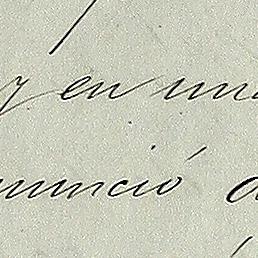 y en una
nunció a